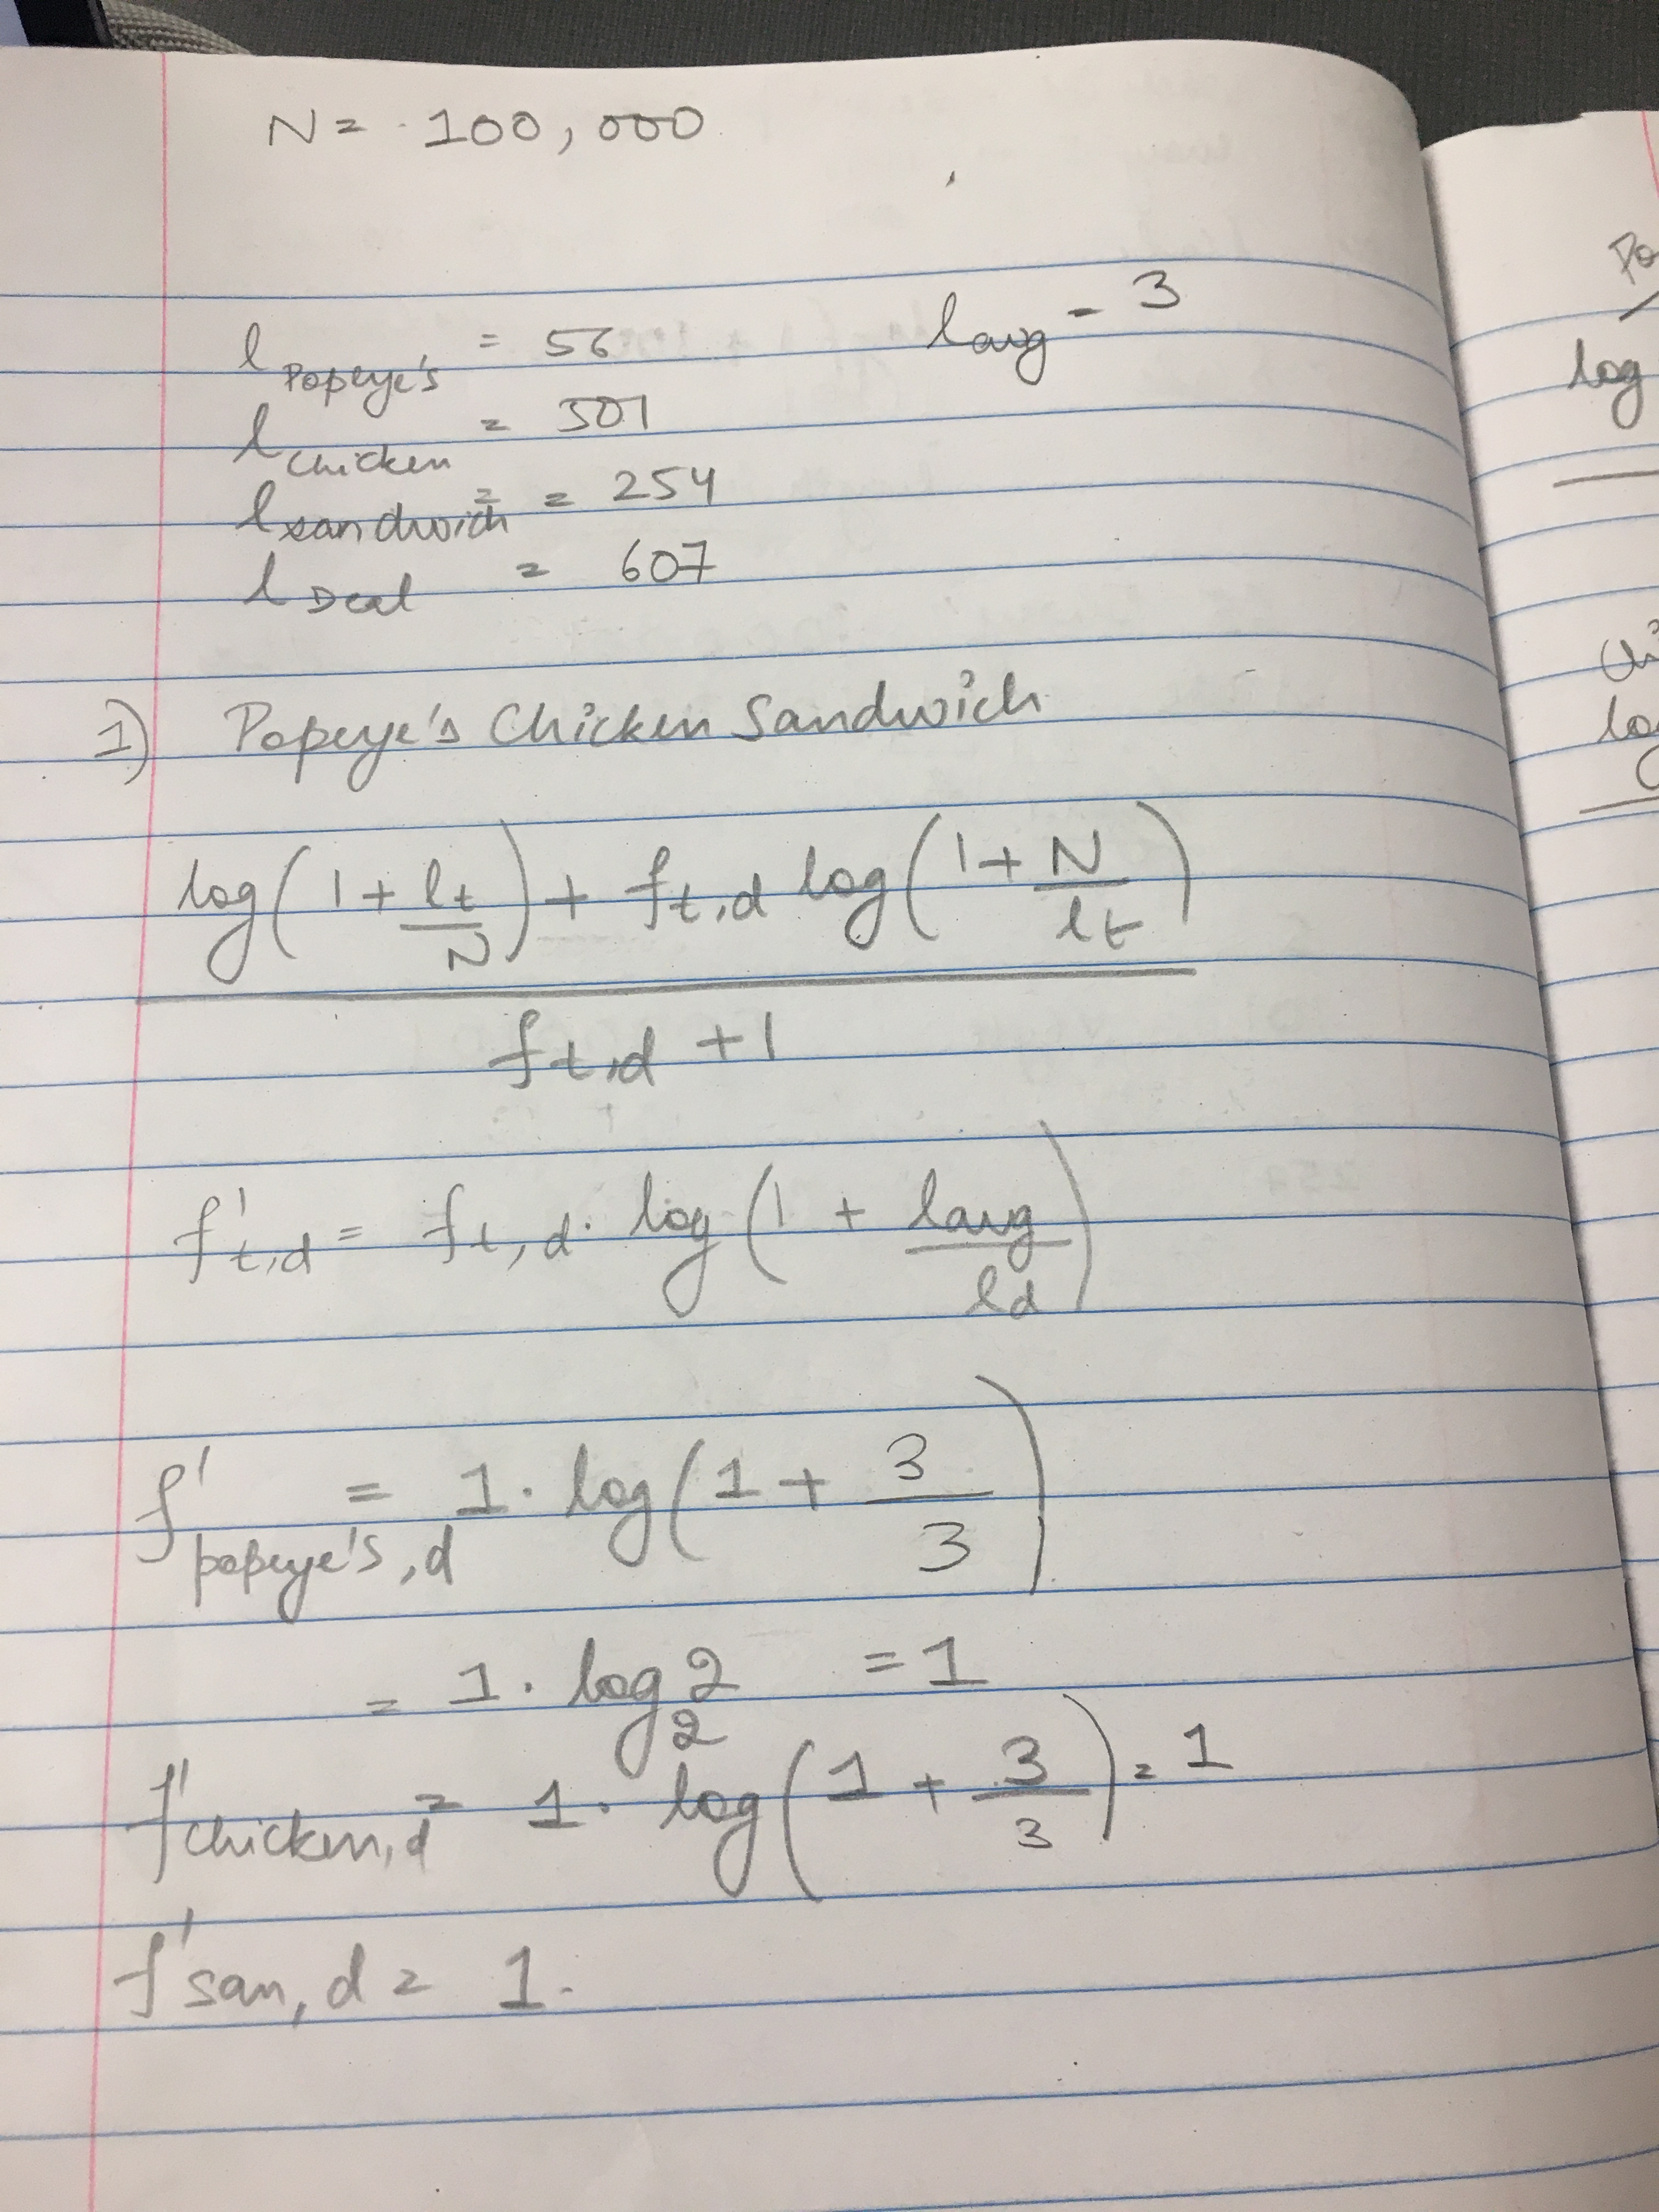 N = 100,000
l Popeye's = 56    lavg = 3
l Chicken = 301
l sandwich = 254
l Deal = 607
1) Popeye's Chicken Sandwich
log(1 + lt/N) + ft,d log(1 + N/lt)
ft,d + 1
f't,d = ft,d . log(1 + lavg/ld)
f' popeye's,d = 1. log(1 + 3/3)
= 1. log₂2 = 1
f' chicken,d = 1. log(1 + 3/3) = 1
f' san,d = 1.
Po
log
Chi
log